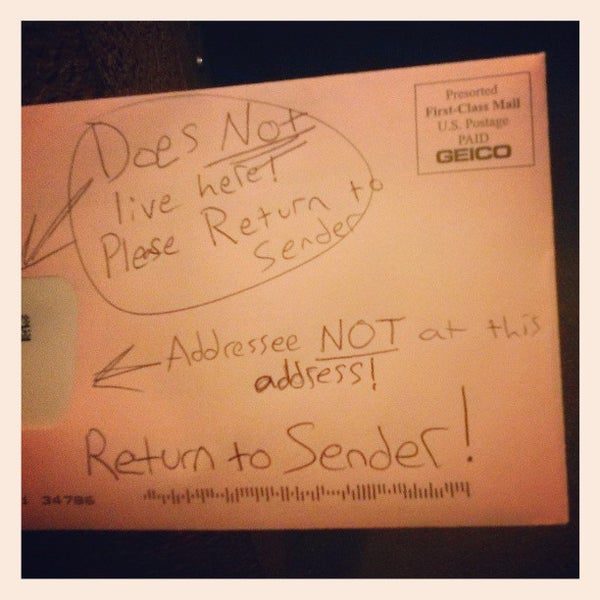 Presorted
First-Class Mail
U.S. Postage
PAID
GEICO
Does Not
live here!
Please Return to
Sender
Addressee NOT at this
address!
Return to Sender!
34786